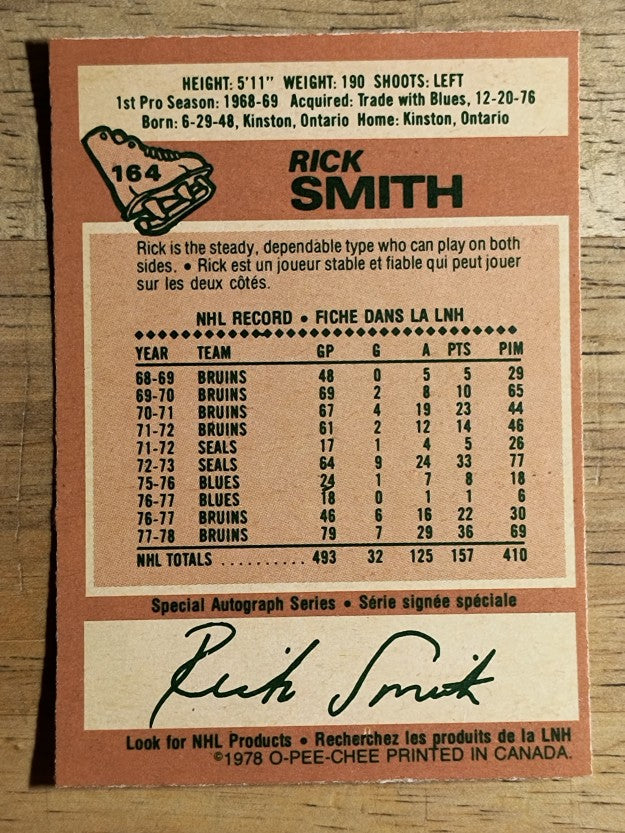 HEIGHT: 5'11" WEIGHT: 190 SHOOTS: LEFT
1st Pro Season: 1968-69 Acquired: Trade with Blues, 12-20-76
Born: 6-29-48, Kinston, Ontario Home: Kinston, Ontario
164
RICK
SMITH
Rick is the steady, dependable type who can play on both
sides. • Rick est un joueur stable et fiable qui peut jouer
sur les deux côtés.
NHL RECORD • FICHE DANS LA LNH
YEAR TEAM GP G A PTS PIM
68-69 BRUINS 48 0 5 5 29
69-70 BRUINS 69 2 8 10 65
70-71 BRUINS 67 4 19 23 44
71-72 BRUINS 61 2 12 14 46
71-72 SEALS 17 1 4 5 26
72-73 SEALS 64 9 24 33 77
75-76 BLUES 24 1 7 8 18
76-77 BLUES 18 0 1 1 6
76-77 BRUINS 46 6 16 22 30
77-78 BRUINS 79 7 29 36 69
NHL TOTALS .......... 493 32 125 157 410
Special Autograph Series • Série signée spéciale
Rick Smith
Look for NHL Products • Recherchez les produits de la LNH
©1978 O-PEE-CHEE PRINTED IN CANADA.